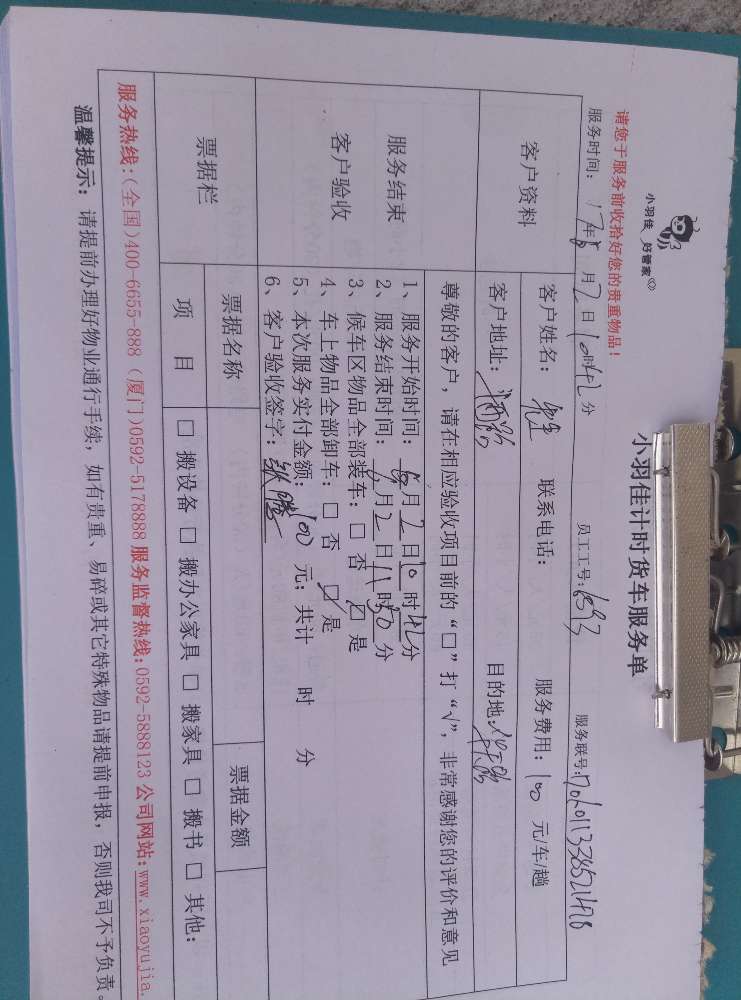 小羽佳 好管家
小羽佳计时货车服务单
请您于服务前收拾好您的贵重物品！
服务时间：17年8月2日10时42分 员工工号： 服务联号：
客户资料 客户姓名： 联系电话： 服务费用：100 元/车/趟
客户地址： 目的地：
服务结束 客户验收
尊敬的客户，请在相应验收项目前的“□”打“√”，非常感谢您的评价和意见
1、服务开始时间：8月2日10时42分
2、服务结束时间：8月2日11时50分
3、候车区物品全部装车：□ 否 ☑ 是
4、车上物品全部卸车：□ 否 ☑ 是
5、本次服务实付金额：100 元；共计 时 分
6、客户验收签字：
票据栏 票据名称 票据金额
项 目 □ 搬设备 □ 搬办公家具 □ 搬家具 □ 搬书 □ 其他：
服务热线：(全国)400-6655-888 (厦门)0592-5178888 服务监督热线：0592-5888123 公司网站：www.xiaoyujia.
温馨提示：请提前办理好物业通行手续，如有贵重、易碎或其它特殊物品请提前申报，否则我司不予负责。